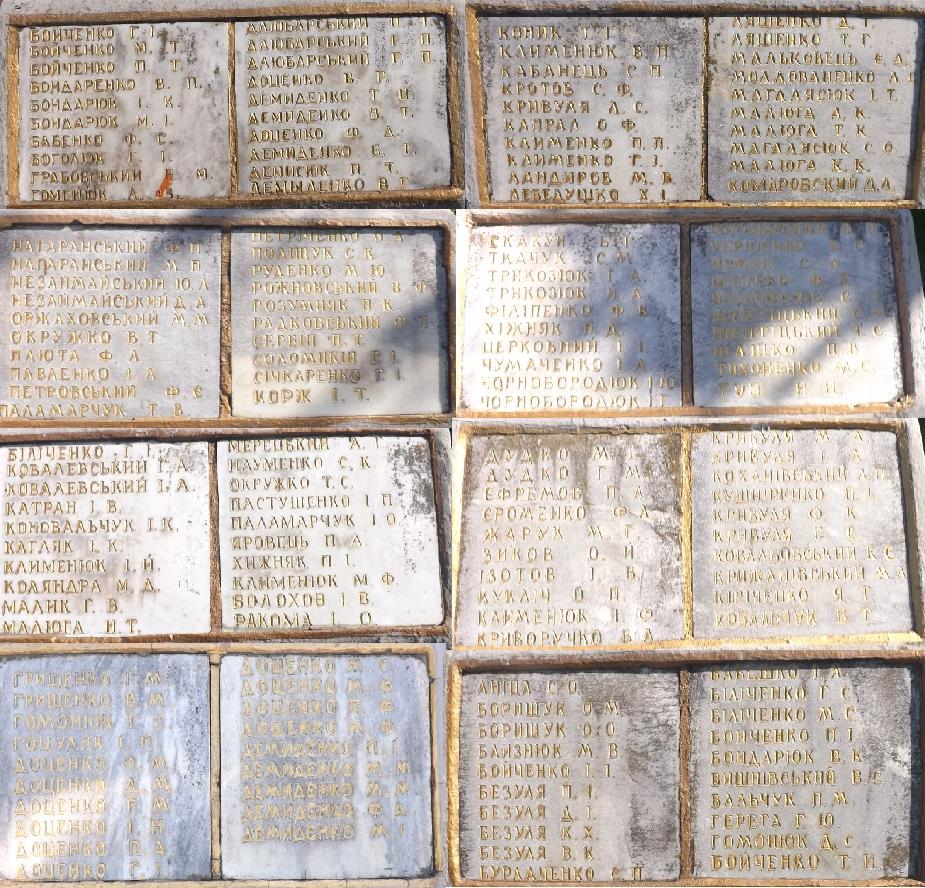 БОЙЧЕНКО Г. І.
БОЙЧЕНКО М. Т.
БОЙЧЕНКО П. Т.
БОНДАРЕНКО В. П.
БОНДАРЮК І. К.
БОНДАРЮК М. І.
БАБЕНКО Ф. С.
БОГОЛЮК Г. І.
ГРАБОВСЬКИЙ М.
ГОМЕНЮК А. В.
ДАЮБАРСЬКИЙ П. І.
ДАЮБАРСЬКИЙ Г. П.
ДАЮБАРСЬКИЙ Г. П.
ДОЦЕНКО В. Р.
ДЕМИДЕНКО Т. Ц.
ДЕМИДЕНКО З. Т.
ДОЦЕНКО Ф. А.
ДЕМИДЕНКО Б. Т.
ДЕНИСИК П. Т.
ДЕМИДЕНКО В. Г.
КОНИК Т. Т.
КЛИМЕНЮК В. Н.
КАБАНЕЦЬ С. П.
КРОТОВ С. Ф.
КРИВУЛЯ Л. С.
КАПРАЛ Ф.
КЛИМЕНКО П. П.
КЛИМЕНКО Г. І.
ЛАНДИРОВ М. В.
ЛЕБЕДУШКО Х. І.
ЛЯШЕНКО Д. І.
ЛЯШЕНКО Т. Г.
МАЛЬКОВЕЦЬ Є. Д.
МОЛДОВАНЕНКО Л. С.
МАГДАЛЯСЮК І. Т.
МАЛЮГА А. К.
МАЛЮГА Т. К.
МАГЛАУСЮК С. О.
МАЛЮГА К. К.
КОМАРОВСКИЙ Д. А.
НАГАРАНСЬКИЙ Ф. П.
НАГАРАНСЬКИЙ М. П.
НЕЗАЙМАЙСЬКИЙ Ю. Л.
НЕЗАЙМАЙСЬКИЙ Д. А.
ОРЖАХОВСЬКИЙ М. М.
ОКРУЖКО В. Т.
ПЛЮТА Ф. А.
ПАВЛЕНКО І. А.
ПЕТРОВСЬКИЙ Ф. Є.
ПАЛАМАРЧУК Т. В.
ПЕТРИЧЕНКО О. А.
ПОЛІЩУК С. К.
РУДЕНКО М. Ю.
РОЖНОВСЬКИЙ В. Ф.
РОЗУМНИК П. К.
РАДКОВСЬКИЙ Ф. П.
СЕРБІН П. Т.
СОЛОМЯНИЙ Г. І.
СІЧКАРЕНКО Г. І.
КОРЖ І. Т.
СКАКУН
ТКАЧУК С. М.
ТРИКОЗЮК Г. А.
ТРИКОЗЮК Й. А.
ФІЛІПЕНКО Ф. К.
ХІЖНЯК П. Д.
ЦЕРКОВНИЙ І. І.
ЧУМАЧЕНКО І. А.
ЧОРНОБОРОДЮК І. Ю.
ЧОРНОБОРОДЮК І. Г.
ТИХОНЕНКО М. С.
ТУЗ И. И.
БІЛІЧЕНКО Г. І.
КОВАЛЕВСЬКИЙ Г. А.
КОВАЛЕВСЬКИЙ І. А.
КАТРАН І. В.
КОНОВАЛЬЧУК І. К.
КАГЛЯК І. К.
КЛИМЕНЮК І. Й.
КОЛЯНДРА М. Д.
МАЛИК Г. В.
МАЛЮГА Н. Т.
МЕРЕЦЬКИЙ А. І.
НАУМЕНКО С. К.
ОКРУЖКО Т. С.
ПАСТУШЕНКО І. П.
ПАЛАМАРЧУК І. О.
ЯРОВЕЦЬ П. А.
ХИЖНЯК П. І.
КЛИМЕНЮК М. Ф.
ВОЛОХОВ І. В.
РАКОМА І. О.
ДУДКО М. Д.
ДУДКО Г. М.
ЄФРЕМОВ П. А.
ЄРОМЕНКО Ф. А.
ЖАРУК М. Т.
ЗИКОВ О. Й.
ІЗОТОВ І. В.
КУКЛІЧ О. П.
КЛИМЕНЮК І. Ф.
КРИВОРУЧКО В. А.
КРИВУЛЯ М. А.
КРИВУЛЯ І. А.
КОХАНІВСЬКИЙ А. П.
КУШНІРЕНКО П. І.
КРИВУЛЯ Ф. К.
КРИВУЛЯ Г. С.
КОВАЛЬОВСЬКИЙ К. Є.
КРИЖАНІВСЬКИЙ М. А.
КІРІЧЕНКО Я. Т.
КОВАЛЬЧУК В. Т.
ГРИЩЕНКО Г. М.
ГРИЩЕНКО В. М.
ГОМОНЮК Г. З.
ГОЦУЛЯК І. П.
ДОЦЕНКО О. М.
ДОЦЕНКО А. М.
ДОЦЕНКО Г. М.
ДОЦЕНКО І. Н.
ДОЦЕНКО П. А.
ДОЦЕНКО Г. І.
ДОЦЕНКО М. С.
ДОЦЕНКО М. Ф.
ДОЦЕНКО Г. Ф.
ДОЦЕНКО М. Ф.
ДЕМИДЕНКО П. І.
ДЕМИДЕНКО М. М.
ДЕМИДЕНКО М. И.
ДЕМИДЕНКО Ф. А.
ДЕМИДЕНКО М. І.
АНІЦА С. О.
БОРИЩУК О. М.
БОРИЩУК О. О.
БЛИЗНЮК М. В.
БОЙЧЕНКО І. І.
БЕЗУЛЯ П. І.
БЕЗУЛЯ Д. І.
БЕЗУЛЯ К. Х.
БЕЗУЛЯ В. К.
БУРЛАЧЕНКО Є. П.
БАБЕШКО Т. А.
БІЛІЧЕНКО Г. С.
БІЛІЧЕНКО М. С.
БОЙЧЕНКО П. І.
БОНДАРЮК В. К.
ВИШНІВСЬКИЙ В. Є.
ВАЛЬЧУК П. М.
ГЕРЕГА Г. Ю.
ГОМОНЮК Д. С.
БОЙЧЕНКО Т. И.